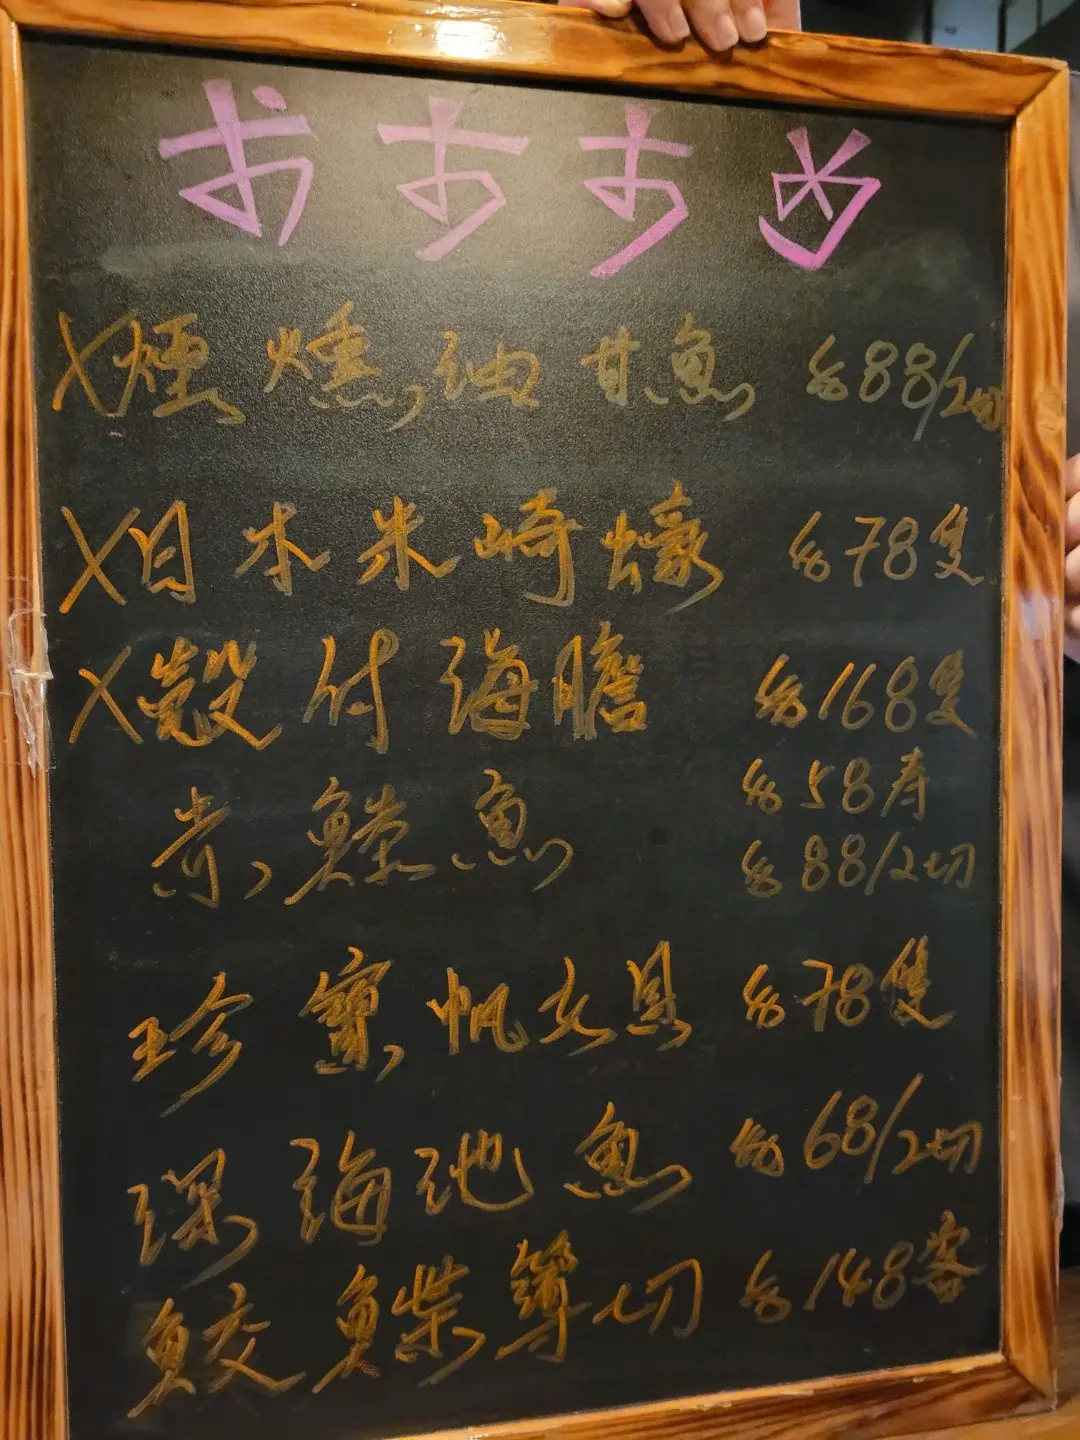 おすすめ
X煙燻油甘魚 $88/2切
X日本米崎蠔 $78隻
X殼付海膽 $168隻
赤 魚 $58寿
$88/2切
珍寶帆立貝 $78隻
深海池魚 $68/2切
鮫 簿切 $148客